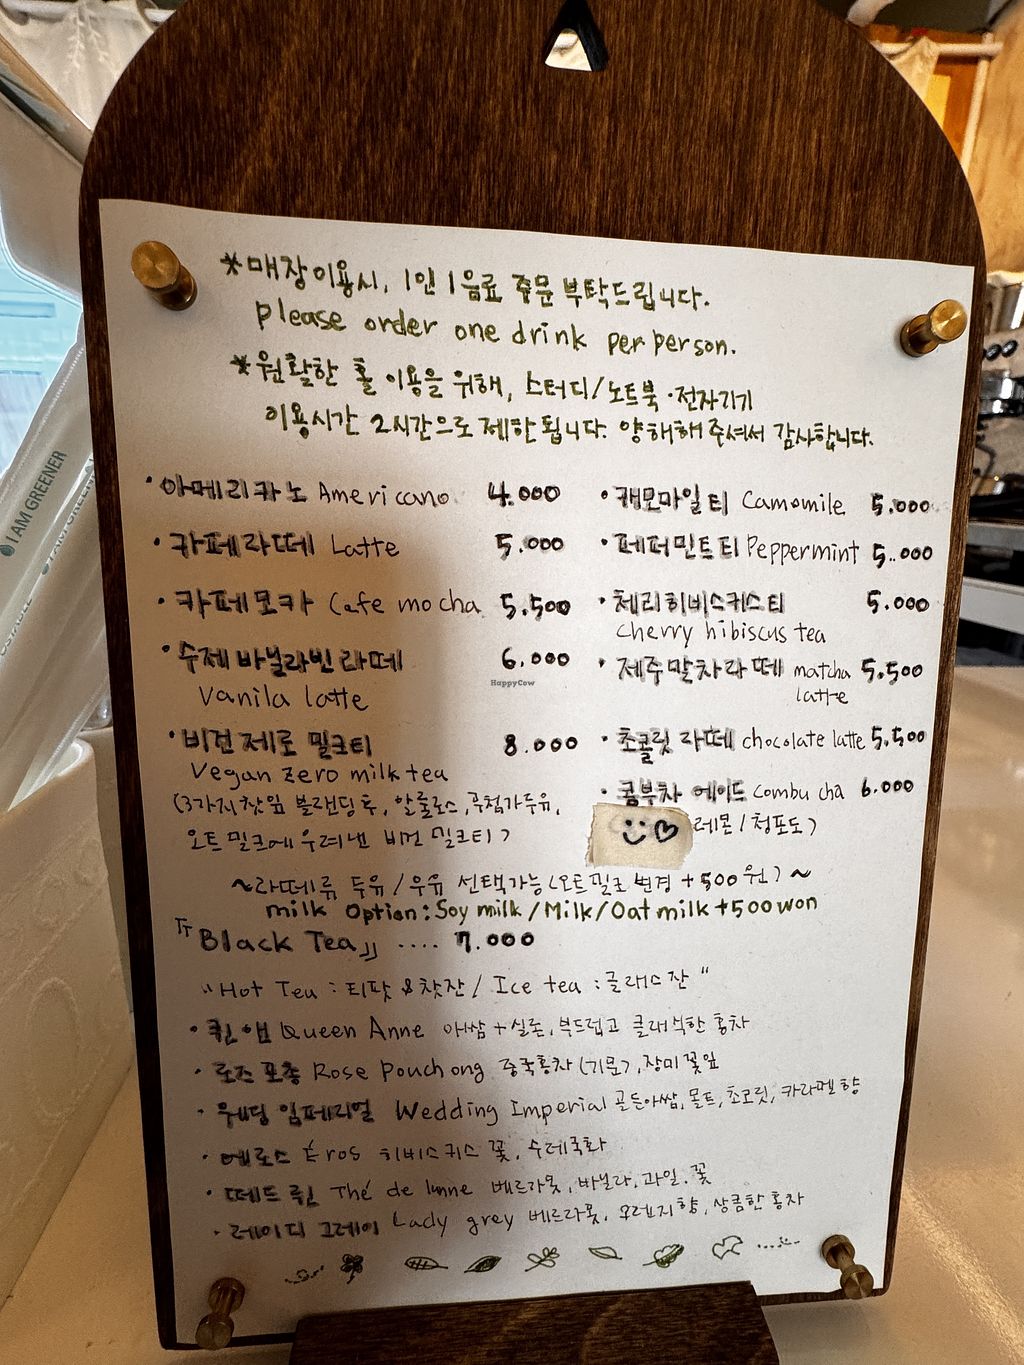 *매장이용시, 1인 1음료 주문 부탁드립니다.
please order one drink per person.
*원활한 홀 이용을 위해, 스터디/노트북·전자기기
이용시간 2시간으로 제한됩니다. 양해해주셔서 감사합니다.
·아메리카노 Americano 4.000
·카페라떼 Latte 5.000
·카페모카 Cafe mocha 5.500
·수제바닐라빈라떼 6.000
Vanila latte
·비건제로 밀크티 8.000
Vegan zero milk tea
(3가지찻잎 블랜딩 후, 알룰로스, 무첨가두유,
오트밀크에 우려낸 비건 밀크티)
·캐모마일티 Camomile 5.000
·페퍼민트티 Peppermint 5.000
·체리히비스커스티 5.000
cherry hibiscus tea
·제주말차라떼 matcha 5.500
latte
·초콜릿 라떼 chocolate latte 5.500
·콤부차 에이드 combu cha 6.000
레몬/청포도)
~라떼류 두유/우유 선택가능(오트밀크 변경 +500원)~
milk Option: Soy milk/Milk/Oat milk+500won
『Black Tea』 .... 7.000
"Hot Tea : 티팟&찻잔/ Ice tea : 글래스 잔"
·퀸 앤 Queen Anne 아쌈+실론, 부드럽고 클래식한 홍차
·로즈 포총 Rose Pouchong 중국홍차(기문), 장미꽃잎
·웨딩 임페리얼 Wedding Imperial 골든아쌈, 몰트, 초코릿, 카라멜향
·에로스 Éros 히비스커스 꽃, 수레국화
·떼드 륀 Thé de lune 베르가못, 바닐라, 과일, 꽃
·레이디 그레이 Lady grey 베르가못, 오렌지향, 상큼한 홍차
I AM GREENER
HappyCow